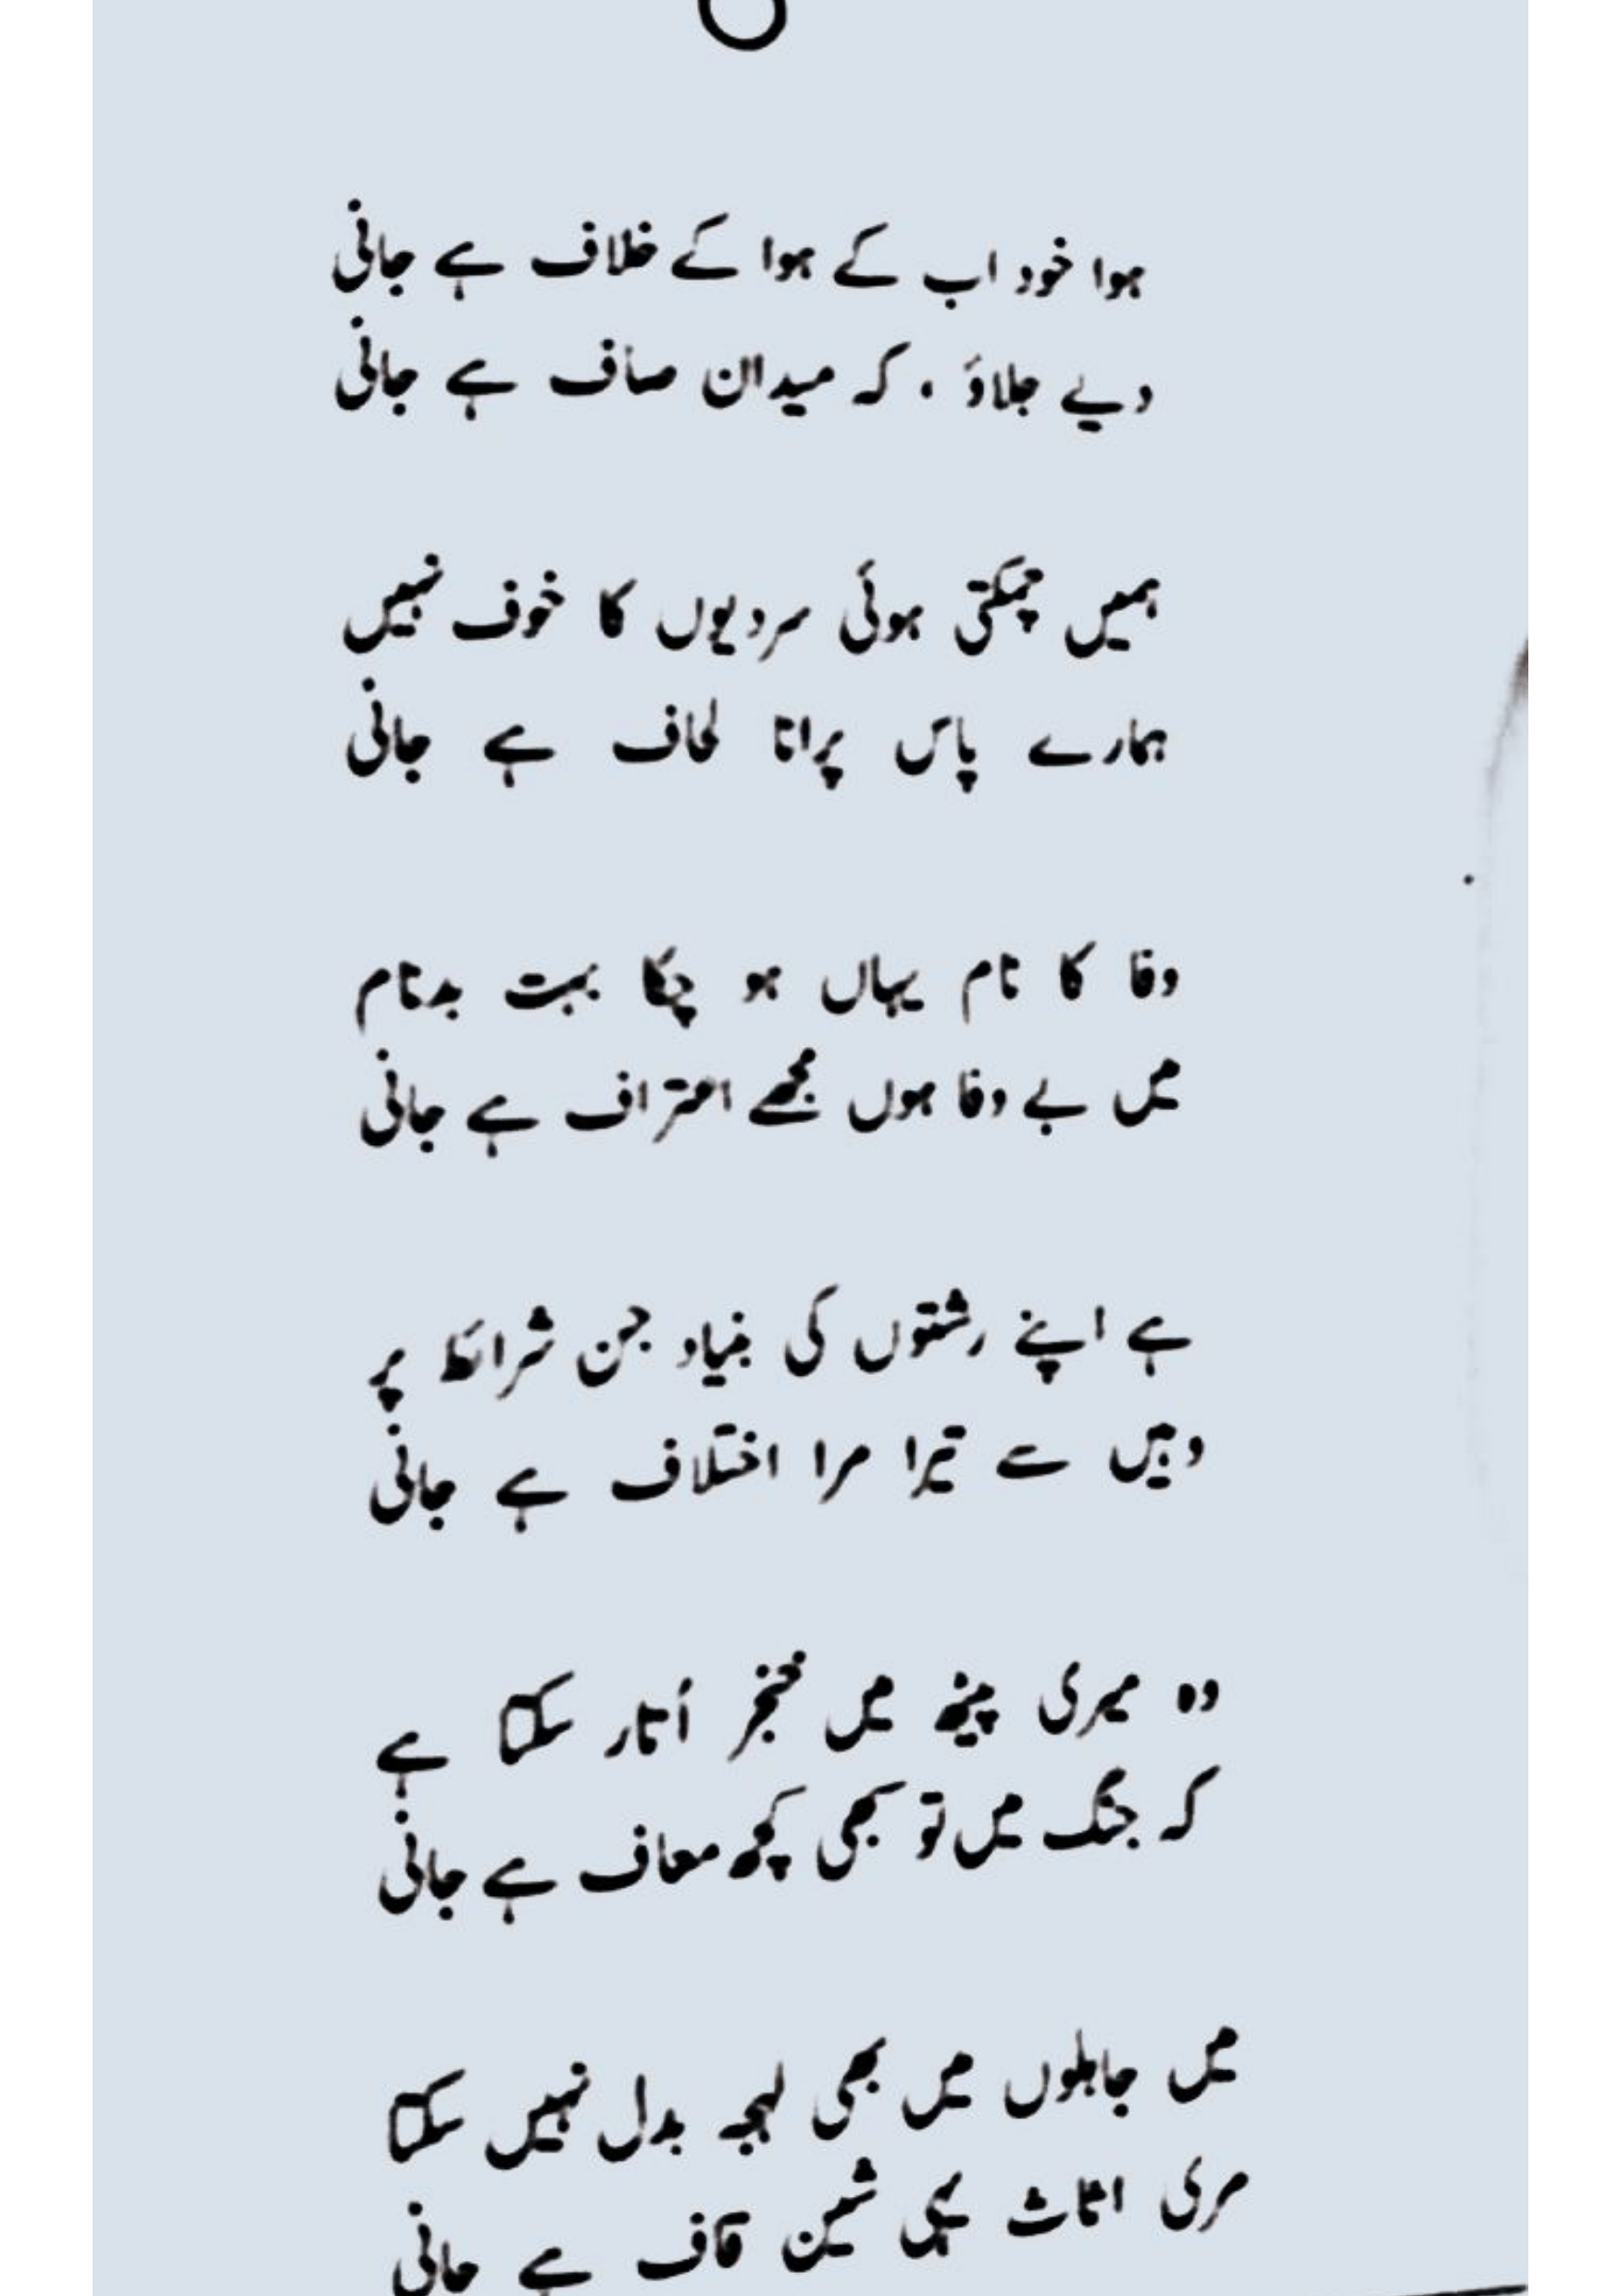 ہوا خود اب کے ہوا کے خلاف ہے جانی
دیے جلاؤ ، کہ میدان صاف ہے جانی
ہمیں چمکتی ہوئی سردیوں کا خوف نہیں
ہمارے پاس پرانا لحاف ہے جانی
وفا کا نام یہاں ہو چکا بہت بدنام
میں بے وفا ہوں مجھے اعتراف ہے جانی
ہے اپنے رشتوں کی بنیاد جن شرائط پر
وہیں سے تیرا مرا اختلاف ہے جانی
وہ میری پیٹھ میں خنجر اُتار سکتا ہے
کہ جنگ میں تو سبھی کچھ معاف ہے جانی
میں جاہلوں میں بھی لہجہ بدل نہیں سکتا
مری اثاث یہی شین قاف ہے جانی